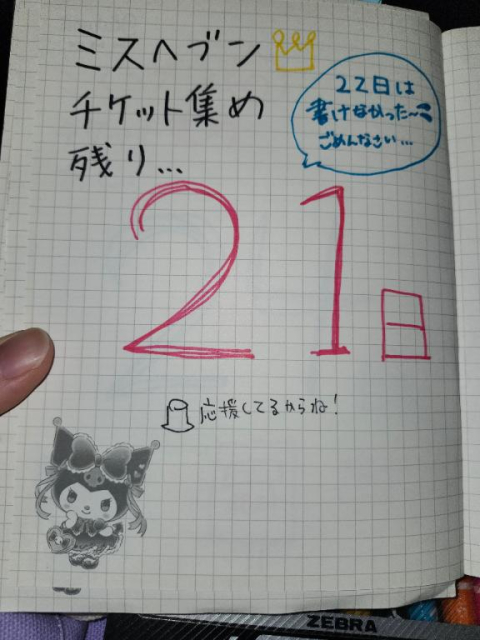 ミスヘブン
チケット集め
残り...
22日は
書けなかった〜
ごめんなさい...
21日
応援してるからね!
ZEBRA